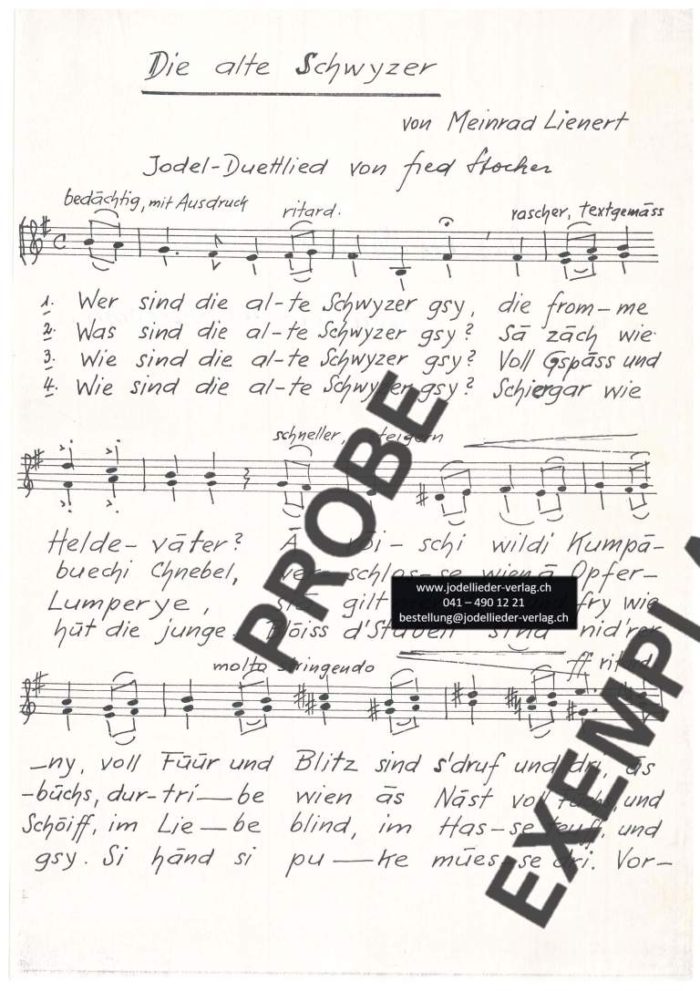 Die alte Schwyzer
von Meinrad Lienert
Jodel-Duettlied von Fred Stocker
bedächtig, mit Ausdruck ritard. rascher, textgemäss
1. Wer sind die al-te Schwyzer gsy, die from-me
2. Was sind die al-te Schwyzer gsy? Sä zäch wie
3. Wie sind die al-te Schwyzer gsy? Voll Gspäss und
4. Wie sind die al-te Schwyzer gsy? Schiergar wie
schneller,
Helde-väter? Ä schi wildi Kumpä-
buechi Chnebel, schlos-se wien ä Opfer-
Lumperye, gilt fry wie
hüt die junge. Blöiss d'Stäbeli sind nid'rer
PROBE
www.jodellieder-verlag.ch
041 – 490 12 21
bestellung@jodellieder-verlag.ch
molto stringendo ff ritard.
-ny, voll Füür und Blitz sind s'druf und dri, äs
-büchs, dur-tri-be wien äs Näst voll und
Schöiff, im Lie-be blind, im Has-se und
gsy. Si händ si pu-ke mües-se dri. Vor-
EXEMPLA